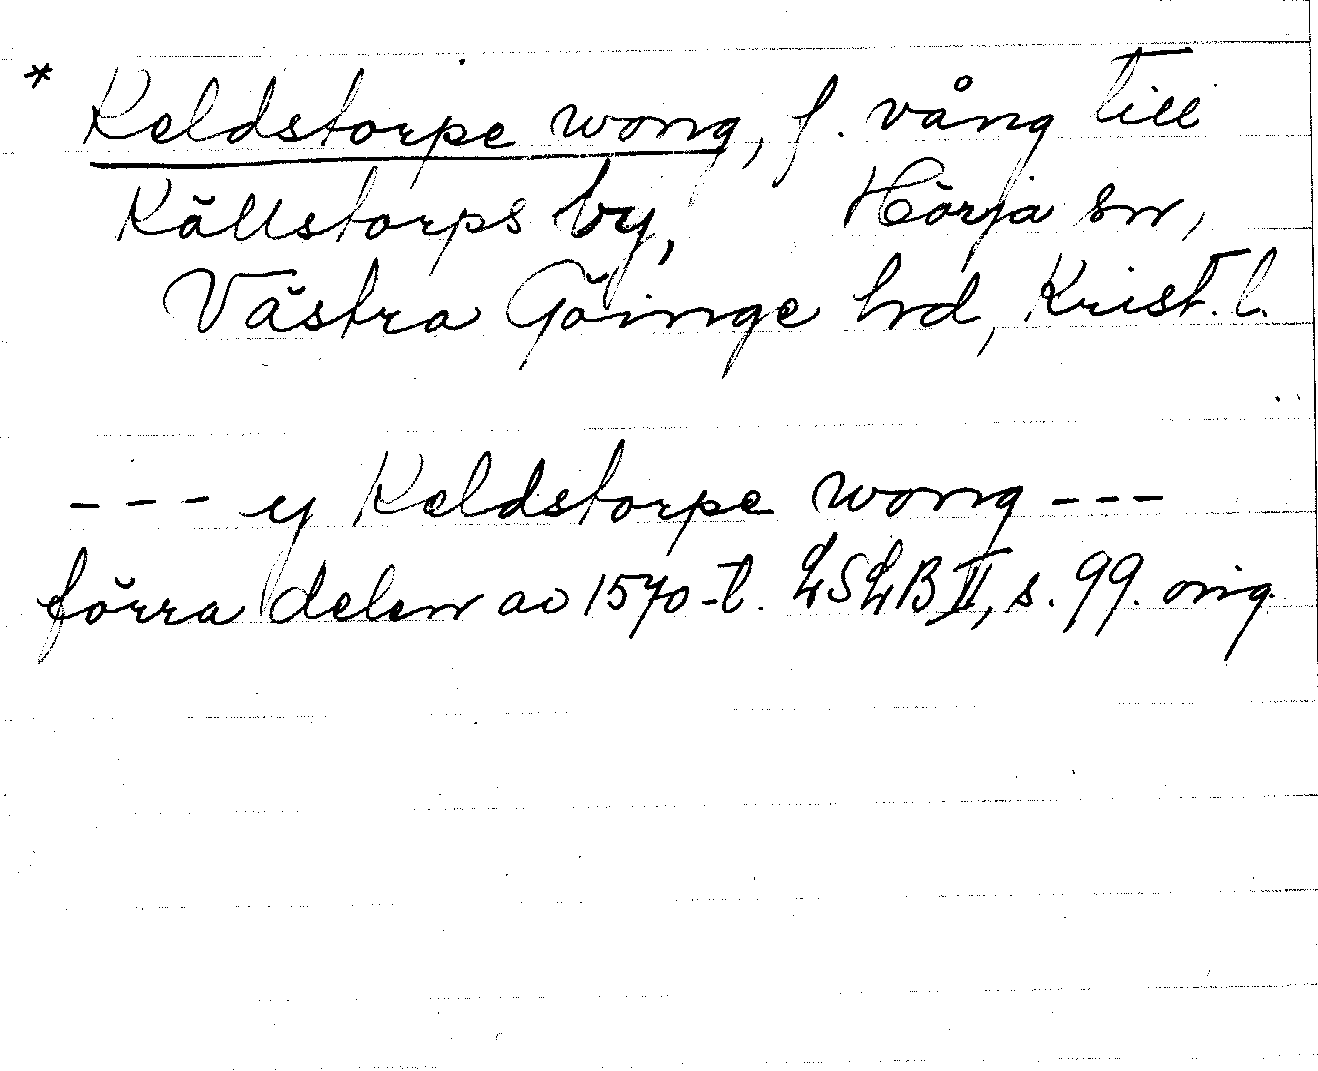 * Keldstorpe wong, f. vång till
Källstorps by, Hörja sn,
Västra Göinge hd, Krist. l.
--- y Keldstorpe wong ---
förra delen av 1570-t. LSLB II, s. 99. orig.